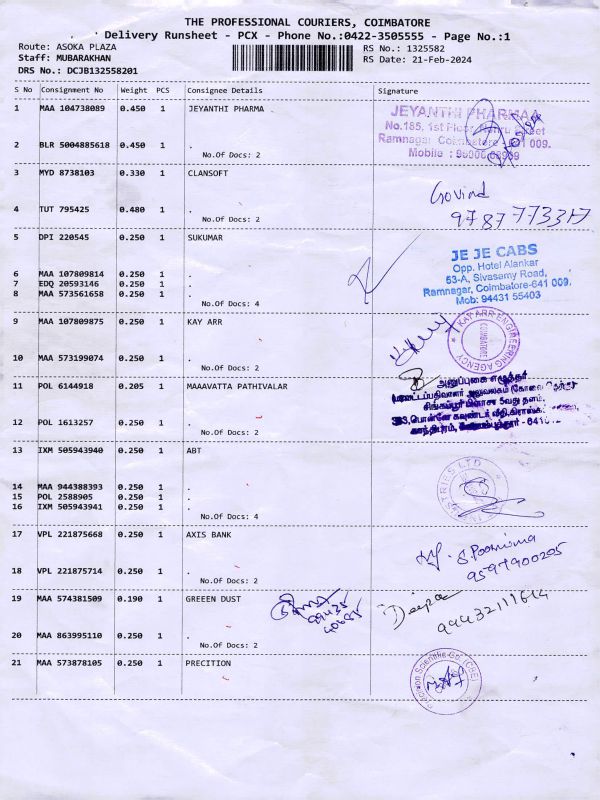 THE PROFESSIONAL COURIERS, COIMBATORE
Delivery Runsheet - PCX - Phone No.:0422-3505555 - Page No.:1
Route: ASOKA PLAZA
RS No.: 1325582
Staff: MUBARAKHAN
RS Date: 21-Feb-2024
DRS No.: DCJB132558201
S No Consignment No Weight PCS Consignee Details Signature
1 MAA 104738089 0.450 1 JEYANTHI PHARMA
JEYANTHI PHARMAA
No.185, 1st Floor, Nehru Street
Ramnagar Coimbatore - 641 009.
Mobile :
2 BLR 5004885618 0.450 1 .
No.Of Docs: 2
3 MYD 8738103 0.330 1 CLANSOFT
Govind
9787773317
4 TUT 795425 0.480 1 .
No.Of Docs: 2
5 DPI 220545 0.250 1 SUKUMAR
JE JE CABS
Opp. Hotel Alankar
53-A, Sivasamy Road,
Ramnagar, Coimbatore-641 009.
Mob: 94431 55403
6 MAA 107809814 0.250 1 .
7 EDQ 20593146 0.250 1 .
8 MAA 573561658 0.250 1 .
No.Of Docs: 4
9 MAA 107809875 0.250 1 KAY ARR
KAY ARR ENGINEERING AGENCY
COIMBATORE
10 MAA 573199074 0.250 1 .
No.Of Docs: 2
11 POL 6144918 0.205 1 MAAAVATTA PATHIVALAR
12 POL 1613257 0.250 1 .
No.Of Docs: 2
13 IXM 505943940 0.250 1 ABT
14 MAA 944388393 0.250 1 .
15 POL 2588905 0.250 1 .
16 IXM 505943941 0.250 1 .
No.Of Docs: 4
17 VPL 221875668 0.250 1 AXIS BANK
S. Poornima
9597900205
18 VPL 221875714 0.250 1 .
No.Of Docs: 2
19 MAA 574381509 0.190 1 GREEEN DUST
Deepa
20 MAA 863995110 0.250 1 .
No.Of Docs: 2
21 MAA 573878105 0.250 1 PRECITION